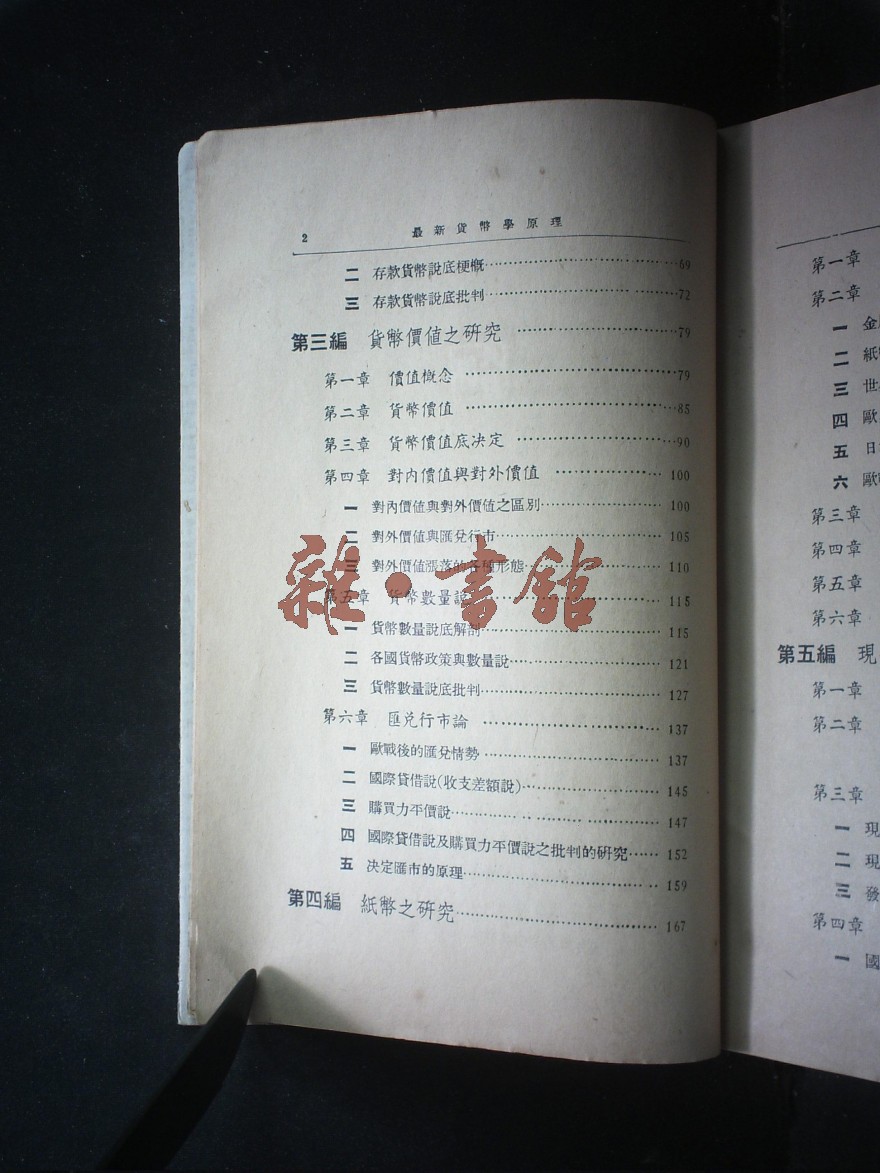 2 最新貨幣學原理
二 存款貨幣說底梗概 69
三 存款貨幣說底批判 72
第三編 貨幣價值之研究 79
第一章 價值概念 79
第二章 貨幣價值 85
第三章 貨幣價值底決定 90
第四章 對內價值與對外價值 100
一 對內價值與對外價值之區別 100
二 對外價值與匯兌行市 105
三 對外價值漲落的各種形態 110
第五章 貨幣數量說 115
一 貨幣數量說底解剖 115
二 各國貨幣政策與數量說 121
三 貨幣數量說底批判 127
第六章 匯兌行市論 137
一 歐戰後的匯兌情勢 137
二 國際貸借說(收支差額說) 145
三 購買力平價說 147
四 國際貸借說及購買力平價說之批判的研究 152
五 決定匯市的原理 159
第四編 紙幣之研究 167
雜·書館
第一章
第二章
一 金
二 紙
三 世
四 歐
五 日
六 歐
第三章
第四章
第五章
第六章
第五編 現
第一章
第二章
第三章
一 現
二 現
三 發
第四章
一 國